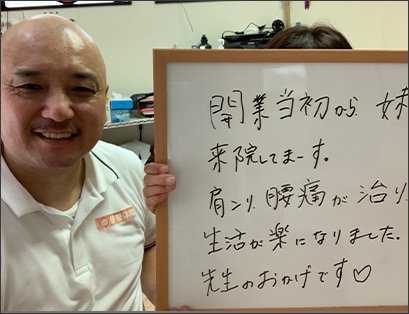 開業当初から 妹
来院してまーす。
肩コリ、腰痛が治り
生活が楽になりました。
先生のおかげです♡